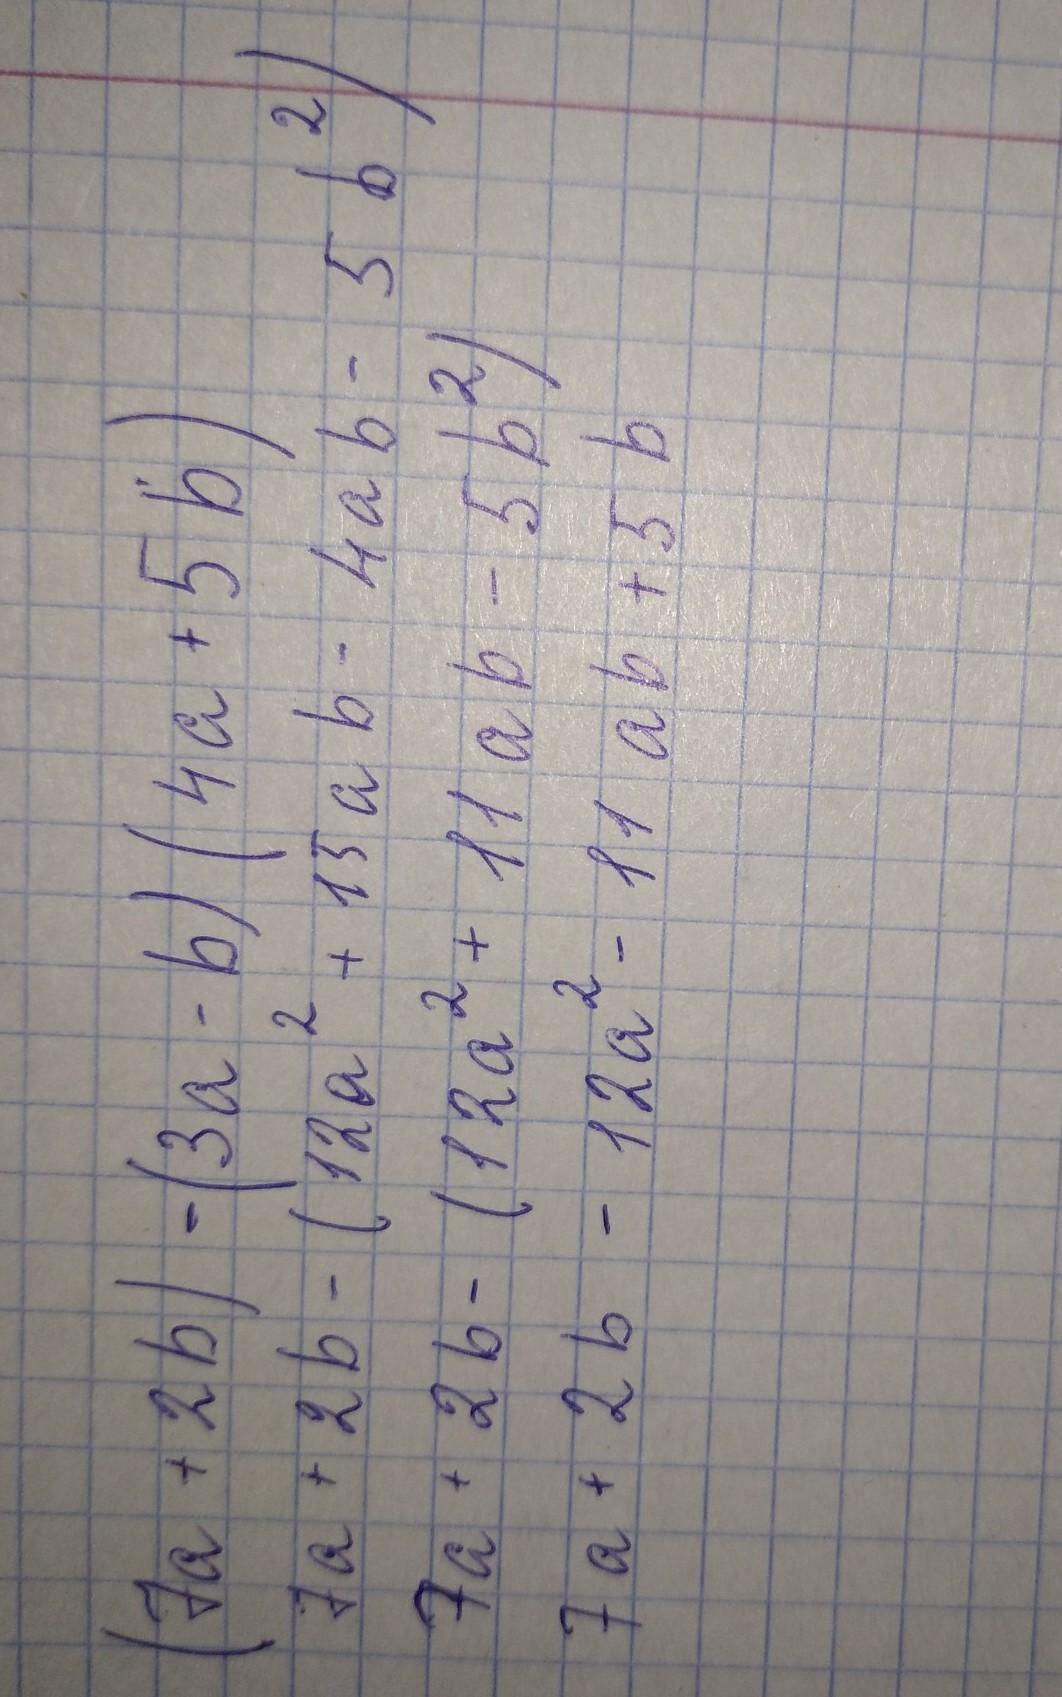 (7a + 2b) - (3a - b) (4a + 5b)
7a + 2b - (12a² + 15ab - 4ab - 5b²)
7a + 2b - (12a² + 11ab - 5b²)
7a + 2b - 12a² - 11ab + 5b